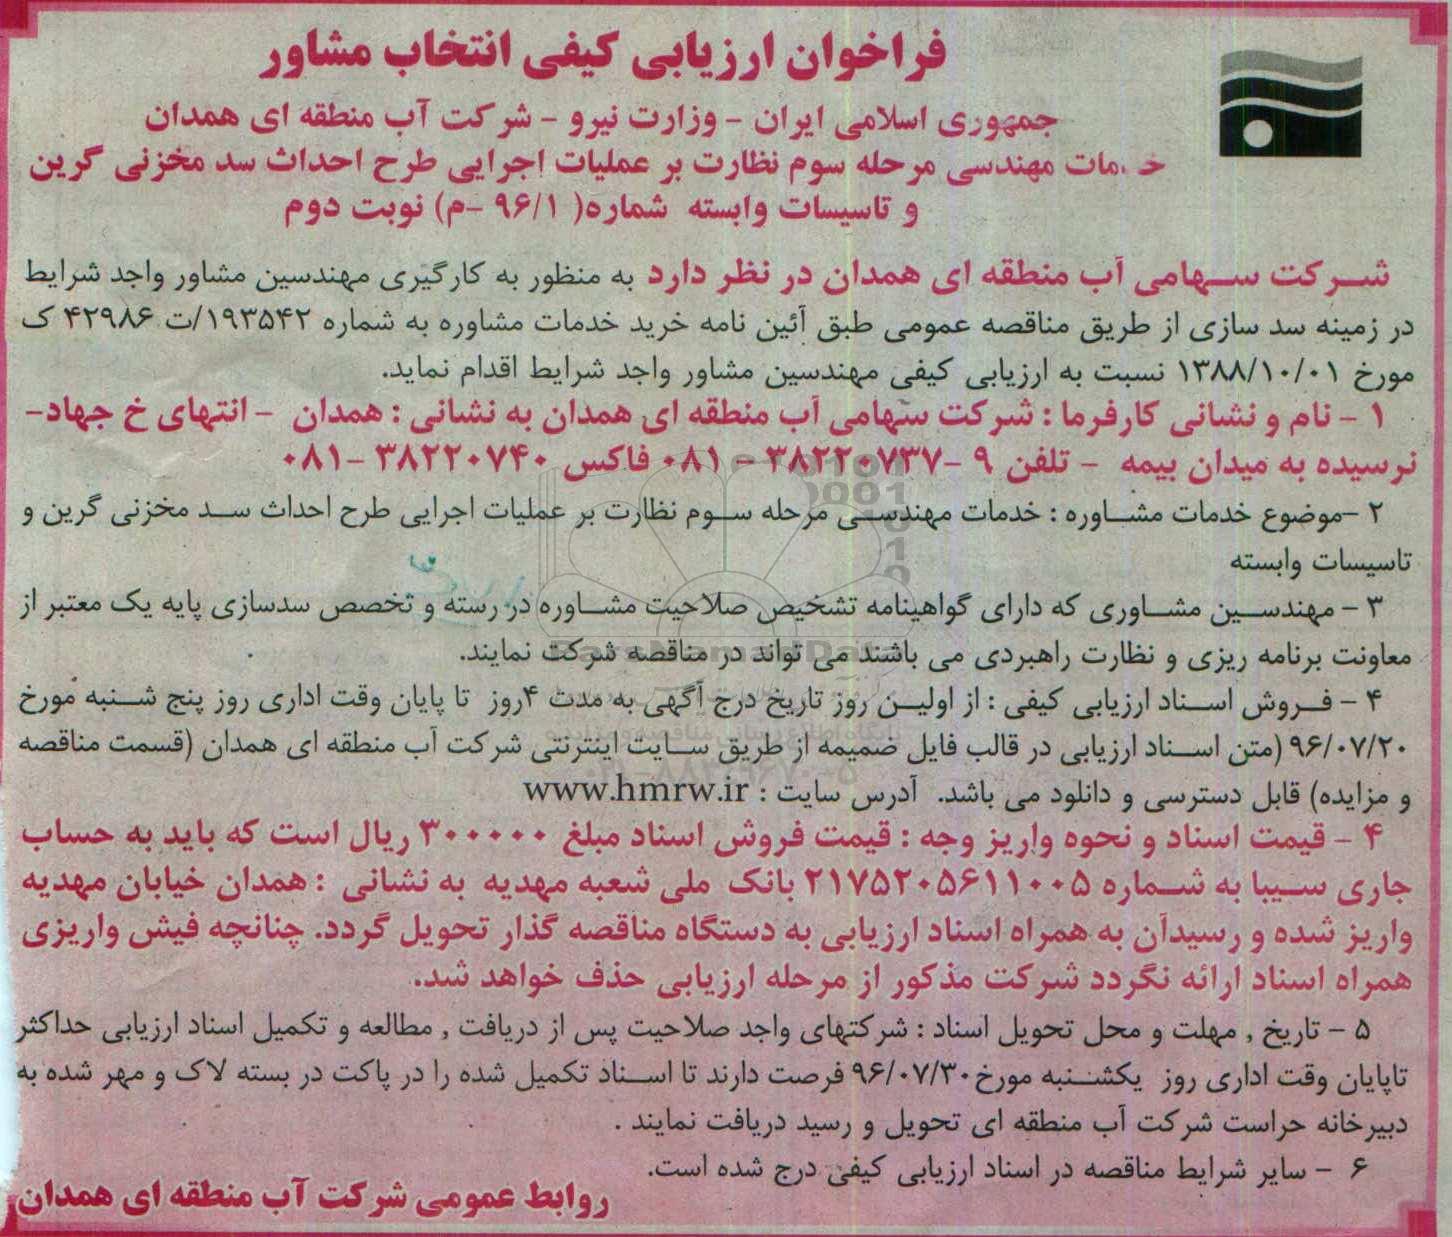 فراخوان ارزیابی کیفی انتخاب مشاور
جمهوری اسلامی ایران - وزارت نیرو - شرکت آب منطقه ای همدان
خدمات مهندسی مرحله سوم نظارت بر عملیات اجرایی طرح احداث سد مخزنی گرین
و تاسیسات وابسته شماره( ۹۶/۱ -م) نوبت دوم
شرکت سهامی آب منطقه ای همدان در نظر دارد به منظور به کارگیری مهندسین مشاور واجد شرایط
در زمینه سد سازی از طریق مناقصه عمومی طبق آئین نامه خرید خدمات مشاوره به شماره ۱۹۳۵۴۲/ت ۴۲۹۸۶ ک
مورخ ۱۳۸۸/۱۰/۰۱ نسبت به ارزیابی کیفی مهندسین مشاور واجد شرایط اقدام نماید.
۱ - نام و نشانی کارفرما : شرکت سهامی آب منطقه ای همدان به نشانی : همدان - انتهای خ جهاد-
نرسیده به میدان بیمه - تلفن ۹ -۳۸۲۲۰۷۳۷ - ۰۸۱ فاکس ۳۸۲۲۰۷۴۰ -۰۸۱
۲ -موضوع خدمات مشاوره : خدمات مهندسی مرحله سوم نظارت بر عملیات اجرایی طرح احداث سد مخزنی گرین و
تاسیسات وابسته
۳ - مهندسین مشاوری که دارای گواهینامه تشخیص صلاحیت مشاوره در رسته و تخصص سدسازی پایه یک معتبر از
معاونت برنامه ریزی و نظارت راهبردی می باشند می تواند در مناقصه شرکت نمایند.
۴ - فروش اسناد ارزیابی کیفی : از اولین روز تاریخ درج آگهی به مدت ۴روز تا پایان وقت اداری روز پنج شنبه مورخ
۹۶/۰۷/۲۰ (متن اسناد ارزیابی در قالب فایل ضمیمه از طریق سایت اینترنتی شرکت آب منطقه ای همدان (قسمت مناقصه
و مزایده) قابل دسترسی و دانلود می باشد. آدرس سایت : www.hmrw.ir
۴ - قیمت اسناد و نحوه واریز وجه : قیمت فروش اسناد مبلغ ۳۰۰۰۰۰ ریال است که باید به حساب
جاری سیبا به شماره ۲۱۷۵۲۰۵۶۱۱۰۰۵ بانک ملی شعبه مهدیه به نشانی : همدان خیابان مهدیه
واریز شده و رسیدآن به همراه اسناد ارزیابی به دستگاه مناقصه گذار تحویل گردد. چنانچه فیش واریزی
همراه اسناد ارائه نگردد شرکت مذکور از مرحله ارزیابی حذف خواهد شد.
۵ - تاریخ , مهلت و محل تحویل اسناد : شرکتهای واجد صلاحیت پس از دریافت , مطالعه و تکمیل اسناد ارزیابی حداکثر
تاپایان وقت اداری روز یکشنبه مورخ۹۶/۰۷/۳۰ فرصت دارند تا اسناد تکمیل شده را در پاکت در بسته لاک و مهر شده به
دبیرخانه حراست شرکت آب منطقه ای تحویل و رسید دریافت نمایند .
۶ - سایر شرایط مناقصه در اسناد ارزیابی کیفی درج شده است.
روابط عمومی شرکت آب منطقه ای همدان